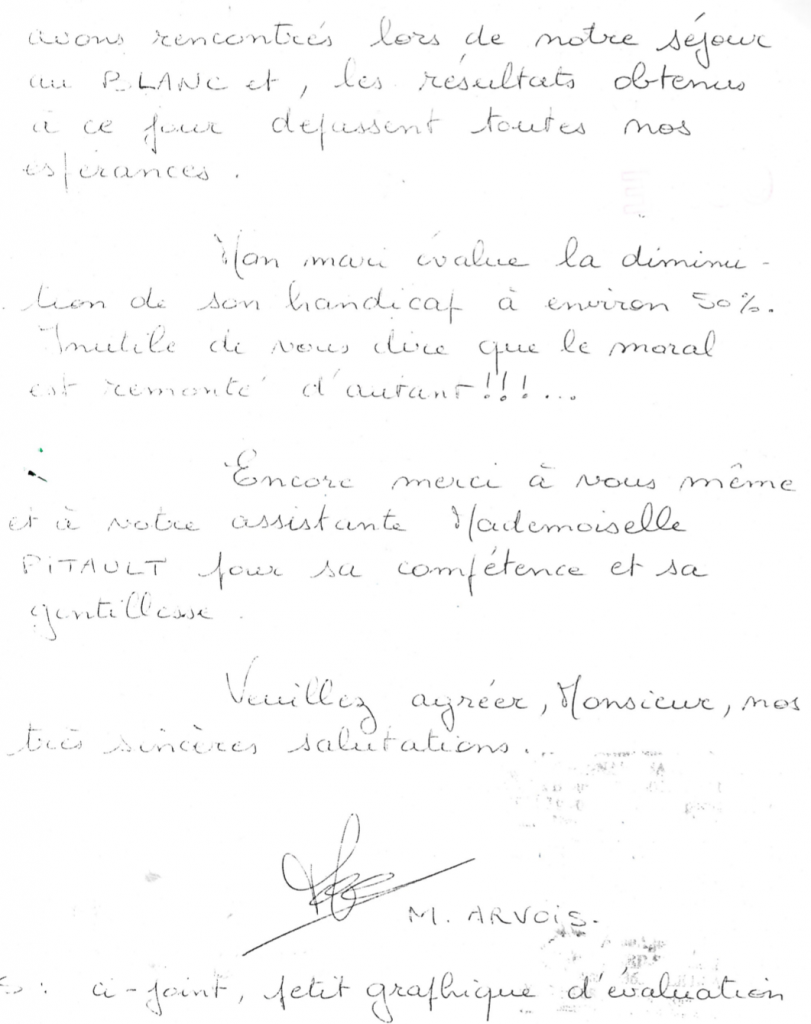 avons rencontrés lors de notre séjour
au BLANC et, les résultats obtenus
à ce jour dépassent toutes nos
espérances.
Mon mari évalue la diminu-
tion de son handicap à environ 50%.
Inutile de vous dire que le moral
est remonté d'autant!!!...
Encore merci à vous même
et à votre assistante Mademoiselle
PITAULT pour sa compétence et sa
gentillesse.
Veuillez agréer, Monsieur, nos
très sincères salutations...
M. ARVOIS.
S: ci-joint, petit graphique d'évaluation